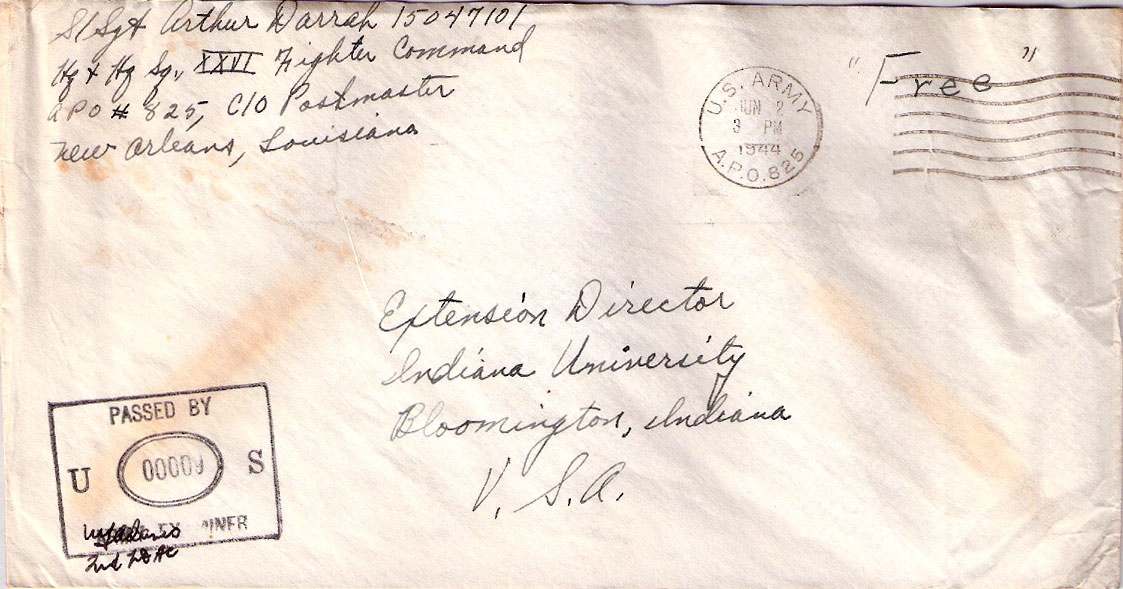 S/Sgt Arthur Darrah 15047101
Hq & Hq Sq., XXVI Fighter Command
APO # 825, C/O Postmaster
New Orleans, Louisiana
"Free"
U.S. ARMY
JUN 2
3 PM
1944
A.P.O. 825
Extension Director
Indiana University
Bloomington, Indiana
U.S.A.
PASSED BY
U 00009 S
2nd Lt AC